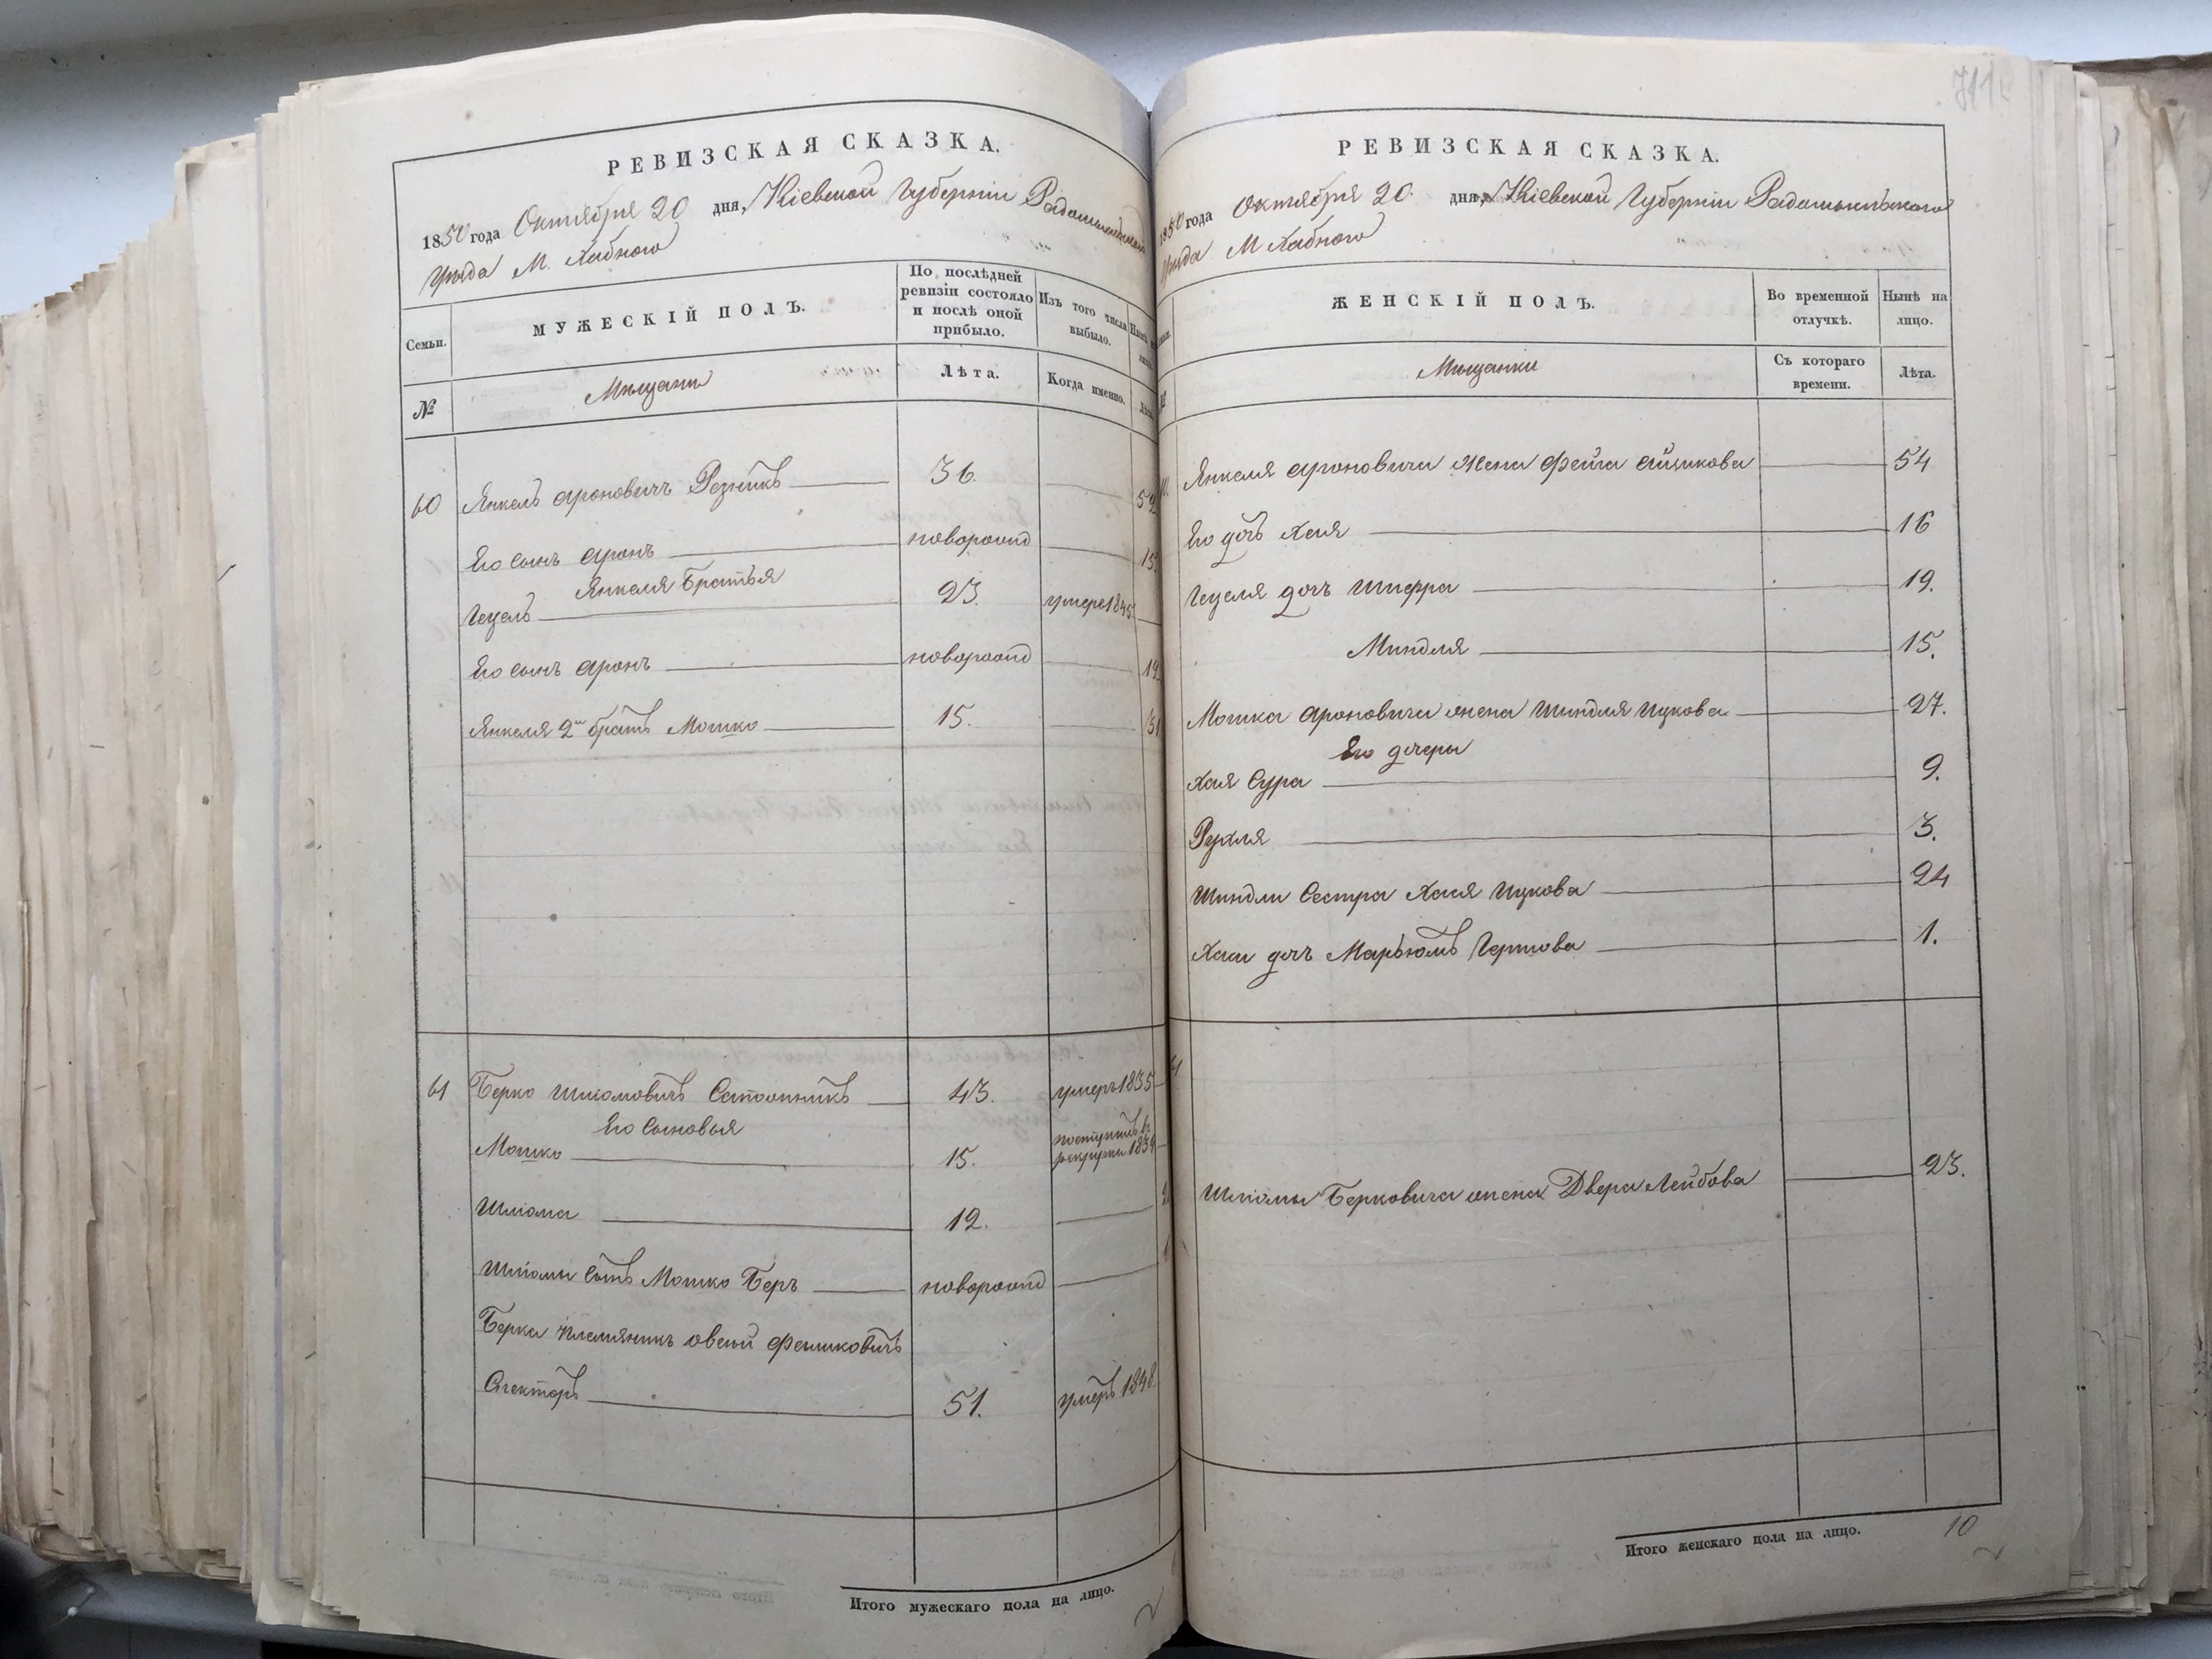 РЕВИЗСКАЯ СКАЗКА.
1850 года Октября 20 дня, Кіевской Губерніи Радомысльскаго
Уѣзда М. Хабного
Семьи.
МУЖЕСКІЙ ПОЛЪ.
По послѣдней
ревизіи состояло
и послѣ оной
прибыло.
Изъ того числа
выбыло.
№
Мѣщани
Лѣта.
Когда именно.
60 Янкель Ароновичъ Резникъ 36. 52
Его сынъ Аронъ новорожд 15.
Янкеля Братья
Гецель 23. умеръ 1845
Его сынъ Аронъ новорожд
Янкеля 2й братъ Мошко 15. 31
61 Берко Шліомовичъ 43. умеръ 1835
Его Сыновья
Мошко 15. поступилъ въ
рекруты 1834
Шліома 12.
Шліомы Сынъ Мошко Беръ новорожд
Берка племяникъ Овсѣй
Спекторъ 51. умеръ 1848.
Итого мужескаго пола на лицо.
711
РЕВИЗСКАЯ СКАЗКА.
1850 года Октября 20 дня, Кіевской Губерніи Радомысльскаго
Уѣзда М Хабного
ЖЕНСКІЙ ПОЛЪ.
Во временной
отлучкѣ.
Нынѣ на
лицо.
Мѣщанки
Съ котораго
времени.
Лѣта.
Янкеля Ароновича жена Фейга Айзикова 54
Его дочь Хая 16
Гецеля дочъ Шифра 19.
Миндля 15.
Мошка Ароновича жена Шиндля Ицкова 27.
Его дочери
Хая Сура 9.
Рухля 3.
Шиндли Сестра Хая Ицкова 24
Хаи дочъ Марьюмъ Гершова 1.
Шліомы Берковича жена Двера Лейбова 23.
Итого женскаго пола на лицо. 10